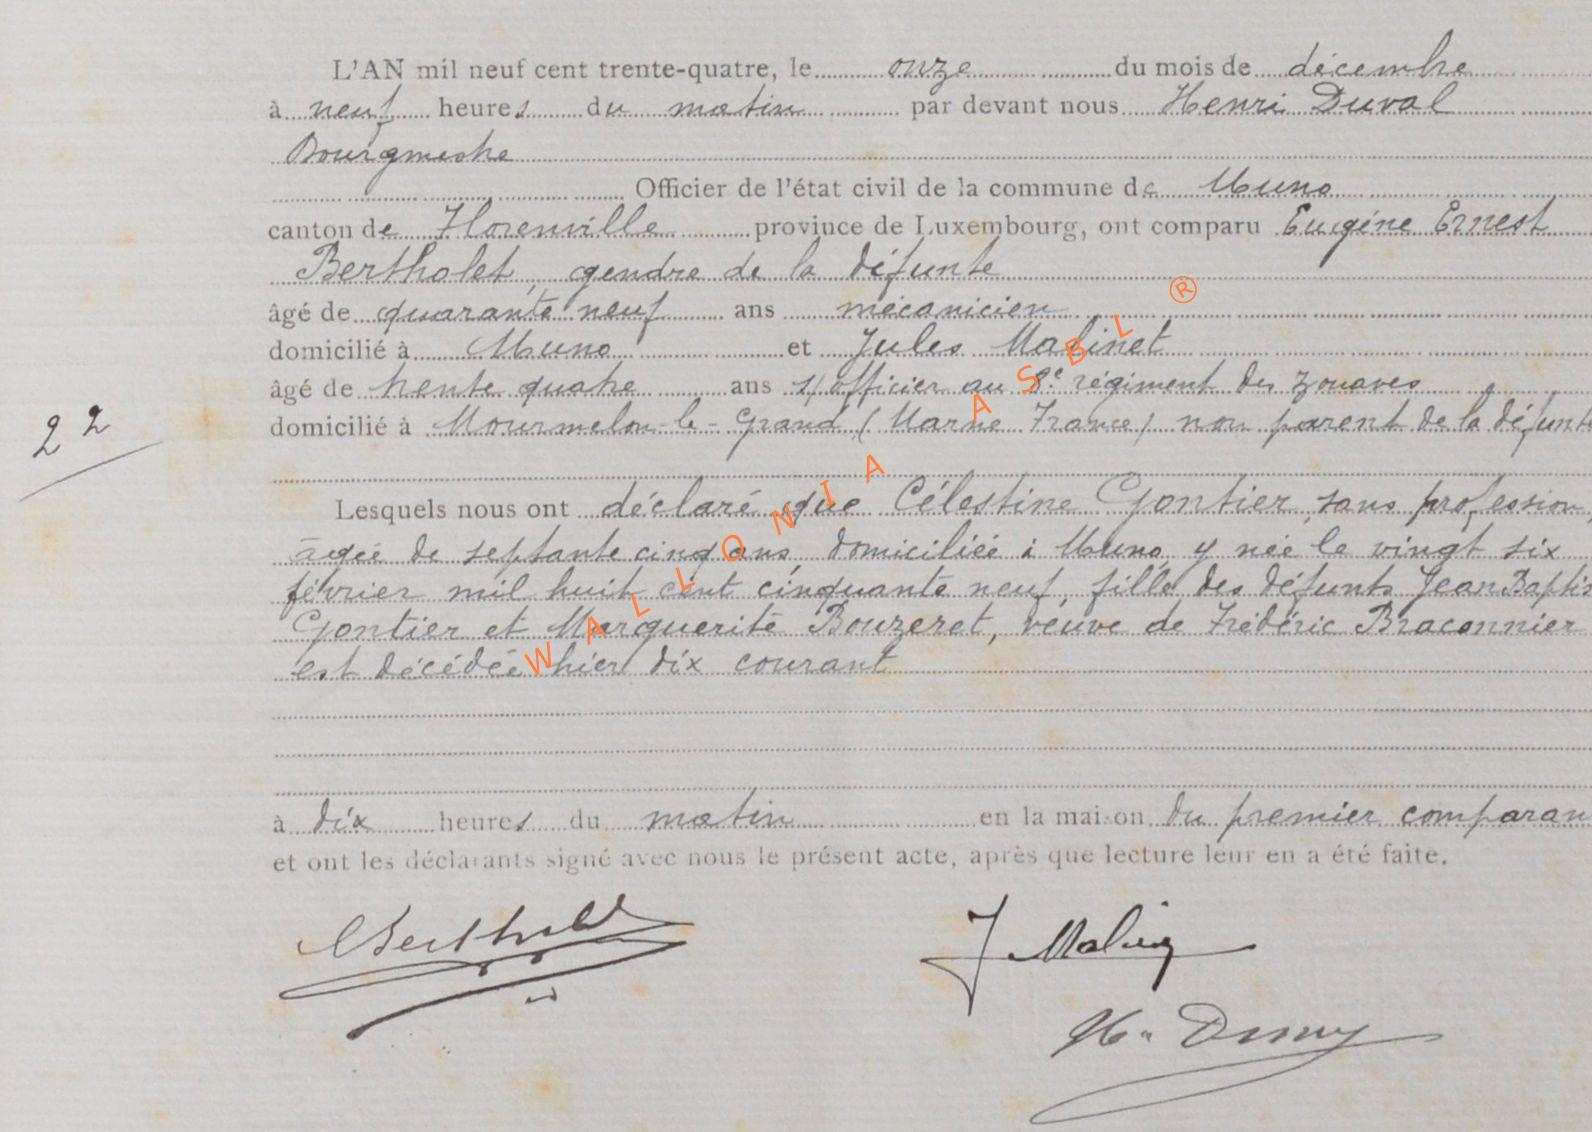 L'AN mil neuf cent trente-quatre, le onze du mois de décembre
à neuf heures du matin par devant nous Henri Duval
Bourgmestre
Officier de l'état civil de la commune de Muno
canton de Florenville province de Luxembourg, ont comparu Eugène Ernest
Bertholet, gendre de la défunte
âgé de quarante neuf ans mécanicien
domicilié à Muno et Jules Malinet
âgé de trente quatre ans s/officier au 8e régiment des zouaves
domicilié à Mourmelon-le-Grand (Marne France) non parent de la défunte
22
Lesquels nous ont déclaré que Célestine Gontier, sans profession
âgée de septante cinq ans, domiciliée à Muno, y née le vingt six
février mil huit cent cinquante neuf, fille des défunts Jean Baptis
Gontier et Marguerite Bouzeret, veuve de Frédéric Braconnier
est décédée hier dix courant
à dix heures du matin en la maison du premier comparan
et ont les déclarants signé avec nous le présent acte, après que lecture leur en a été faite.
WALLONIA ASBL ®